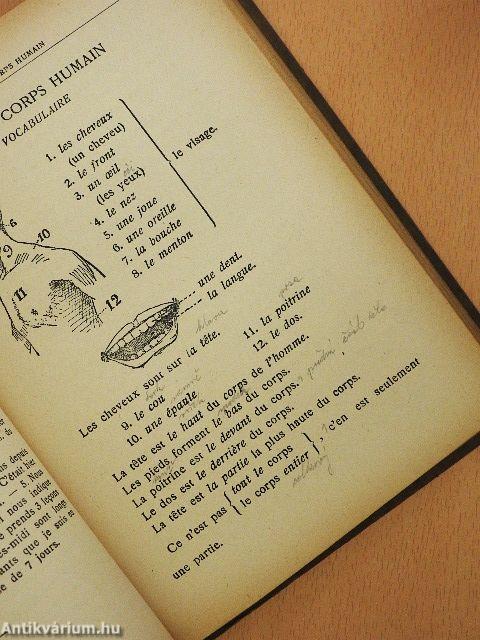 CORPS HUMAIN
CORPS HUMAIN
VOCABULAIRE
1. les cheveux
(un cheveu)
2. le front
3. un œil
(les yeux)
4. le nez
5. une joue
6. une oreille
7. la bouche
8. le menton
le visage.
6
9
10
11
12
une dent.
la langue.
Les cheveux sont sur la tête.
9. le cou
10. une épaule
11. la poitrine
12. le dos.
La tête est le haut du corps de l'homme.
Les pieds forment le bas du corps.
La poitrine est le devant du corps.
Le dos est le derrière du corps.
La tête est la partie la plus haute du corps.
Ce n'est pas { tout le corps / le corps entier }, c'en est seulement
une partie.
depuis
C'était hier
— 5. Nous
nous indique
prends 3 leçons
-midi sont longs
ants que je suis se
e de 7 jours.
Antikvárium.hu